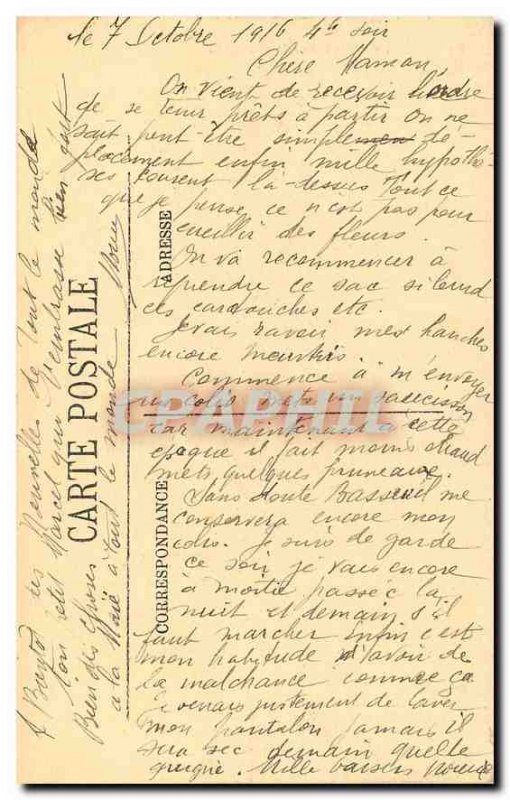 le 7 Octobre 1916 4h soir
Chère Maman,
On vient de recevoir l'ordre
de se tenir prêts à partir On ne
sait peut-être simplement dé-
placement enfin mille hypothè-
ses courent là-dessus tout ce
que je pense ce n'est pas pour
cueillir des fleurs.
On va recommencer à
reprendre ce sac si lourd
ces cartouches etc.
Je vais ravoir mes hanches
encore meurtris.
Commence à m'envoyer
un colis mets un saucisson
car maintenant à cette
époque il fait moins chaud
mets quelques pruneaux.
Sans doute me
conservera encore mon
colis. Je suis de garde
ce soir je vais encore
à moitié passé la
nuit et demain s'il
faut marcher enfin c'est
mon habitude d'avoir de
la malchance comme ça
je venais justement de laver
mon pantalon jamais il
sera sec demain quelle
guigne. Mille baisers
A Bientôt tes Nouvelles de tout le monde
ton Marcel qui t'embrasse bien fort
Bien des choses
à la à tout le monde
CARTE POSTALE
ADRESSE
CORRESPONDANCE
CPAPHIL